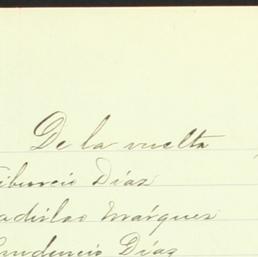 De la vuelta
Tiburcio Días
Ladislao Márques
Prudencio Días